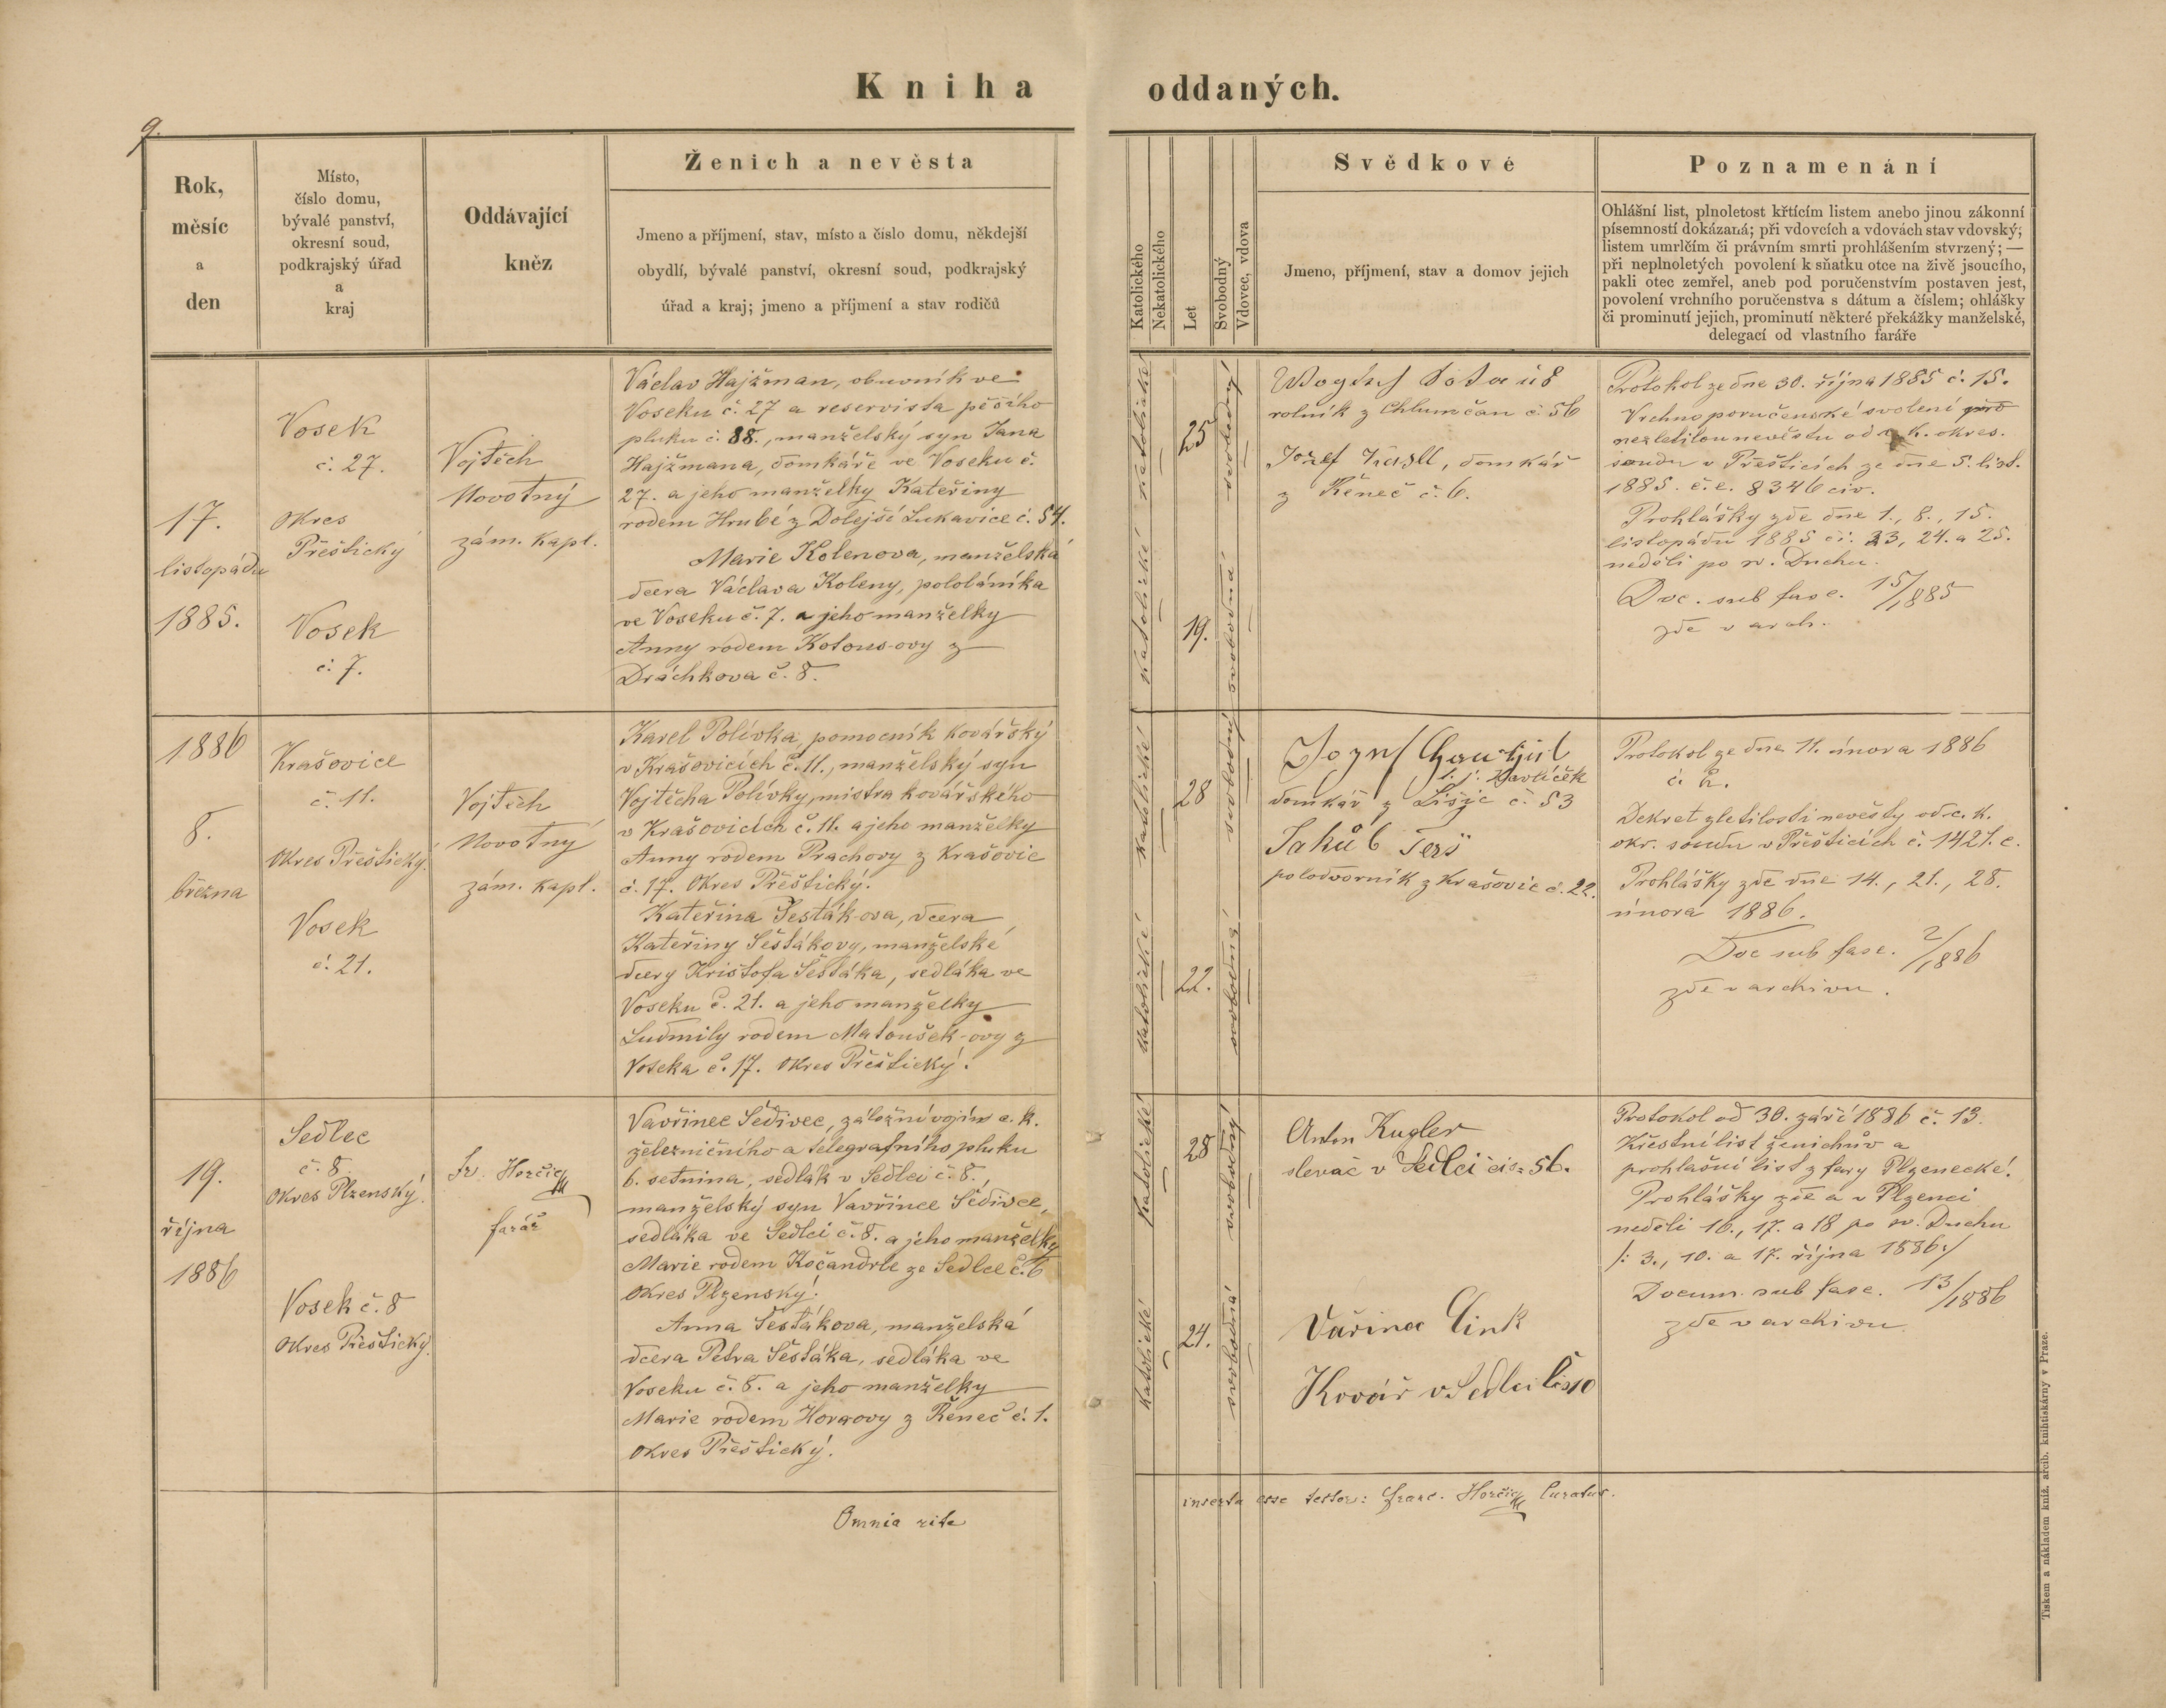 Kniha oddaných.
9.
Rok,
měsíc
a
den
Místo,
číslo domu,
bývalé panství,
okresní soud,
podkrajský úřad
a
kraj
Oddávající
kněz
Ženich a nevěsta
Jmeno a příjmení, stav, místo a číslo domu, někdejší
obydlí, bývalé panství, okresní soud, podkrajský
úřad a kraj; jmeno a příjmení a stav rodičů
Katolického
Nekatolického
Let
Svobodný
Vdovec, vdova
Svědkové
Jmeno, příjmení, stav a domov jejich
Poznamenání
Ohlášní list, plnoletost křtícím listem anebo jinou zákonní
písemností dokázaná; při vdovcích a vdovách stav vdovský,
listem umrlčím či právním smrti prohlášením stvrzený; —
při neplnoletých povolení k sňatku otce na živě jsoucího,
pakli otec zemřel, aneb pod poručenstvím postaven jest,
povolení vrchního poručenstva s dátum a číslem; ohlášky
či prominutí jejich, prominutí některé překážky manželské,
delegací od vlastního faráře
17.
listopádu
1885.
Vosek
č. 27.
Okres
Přeštický
Vosek
č. 7.
Vojtěch
Novotný
zám. kapl.
Václav Hajžman, obuvník ve
Voseku č. 27 a reservista pěšího
pluku č. 88., manželský syn Jana
Hajžmana, domkáře ve Voseku č.
27. a jeho manželky Kateřiny
rodem Hrubé z Dolejší Lukavice č. 54.
Marie Kolenova, manželská
dcera Václava Koleny, pololáníka
ve Voseku č. 7. a jeho manželky
Anny rodem Kotous-ovy z
Dráchkova č. 8.
katolické
katolické
25
19.
svobodný
svobodná
rolník z Chlumčan č 56
Jozef, domkář
z Řeneč č. 6.
Protokol ze dne 30. října 1885 č. 15.
Vrchnoporučenské svolení pro
nezletilou nevěstu od c. k. okres.
soudu v Přešticích ze dne 5. list.
1885. č. e. 8346 civ.
Prohlášky zde dne 1., 8., 15.
listopádu 1885 či. 23, 24. a 25.
neděli po sv. Duchu.
Doc. sub fasc. 15/1885
zde v arch.
1886
8.
března
Krašovice
č. 11.
Okres Přeštický.
Vosek
č. 21.
Vojtěch
Novotný
zám. kapl.
Karel Polívka, pomocník kovářský
v Krašovicích č. 11., manželský syn
Vojtěcha Polívky, mistra kovářského
v Krašovicích č. 11. a jeho manželky
Anny rodem Prachovy z Krašovic
č. 17. Okres Přeštický.
Kateřina Šesták-ova, dcera
Kateřiny Šéstákovy, manželské
dcery Krištofa Šéstáka, sedláka ve
Voseku č. 21. a jeho manželky
Ludmily rodem Matoušek-ovy z
Voseka č. 17. Okres Přeštický.
katolické
katolické
28
22.
svobodný
svobodná
t. j. Havlíček
domkář z Lišic č. 53
Jakub
polodvorník z Krašovic č. 22.
Protokol ze dne 11. února 1886
č. 2.
Dekret zletilosti nevěsty od c. k.
okr. soudu v Přešticích č. 1421. c.
Prohlášky zde dne 14., 21., 28.
února 1886.
Doc sub fasc. 2/1886
zde v archivu.
19.
října
1886
Sedlec
č. 8.
Okres Plzenský.
Vosek č. 8
Okres Přeštický.
Fr. Horčic
farář
Vavřinec Šedivec, záložní vojín c. k.
železničního a telegrafního pluku
6. setnina, sedlák v Sedlci č. 8.,
manželský syn Vavřince Šedivce,
sedláka ve Sedlci č. 8. a jeho manželky
Marie rodem Kočandrle ze Sedlce č. 6
Okres Plzenský.
Anna Šestákova, manželská
dcera Petra Šéstáka, sedláka ve
Voseku č. 8. a jeho manželky
Marie rodem Horovy z Řeneč č. 1.
Okres Přeštický.
katolické
katolické
28
24.
svobodný
svobodná
Anton Kugler
slevač v Sedlci čis: 56.
Vařinec Cink
Kovář v Sedlci čis 10
Protokol od 30. září 1886 č. 13.
Křestní list ženichův a
prohlašní list z fary Plzenecké.
Prohlášky zde a v Plzenci
neděli 16., 17. a 18 po sv. Duchu
/: 3., 10. a 17. října 1886:/
Docum. sub fasc. 13/1886
zde v archivu
Omnia rite inserta esse testor: Franc. Horčic Curatus.
Tiskem a nákladem kníž. arcib. knihtiskárny v Praze.